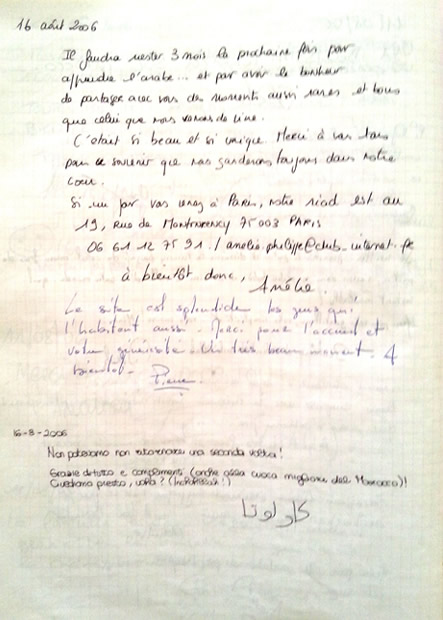 16 août 2006
Il faudra rester 3 mois la prochaine fois pour
apprendre l'arabe... et par avoir le bonheur
de partager avec vous des moments aussi rares et bons
que celui que nous venons de vivre.
C'était si beau et si unique. Merci à vous tous
pour ce souvenir que nous garderons toujours dans notre
cœur.
Si un jour vous venez à Paris, notre riad est au
19, Rue de Montmorency 75003 PARIS
06 61 12 75 91 / amelie.philippe@club_internet.fr
à bientôt donc, Amélie.
Le site est splendide les gens qui
l'habitent aussi. Merci pour l'accueil et
votre générosité. Un très beau moment. A
bientôt. Pierre.
16-8-2006
Non potevamo non ritornarci una seconda volta!
Grazie di tutto e complimenti (anche alla cuoca migliore del Marocco)!
Ci vediamo presto,
كارلوتا